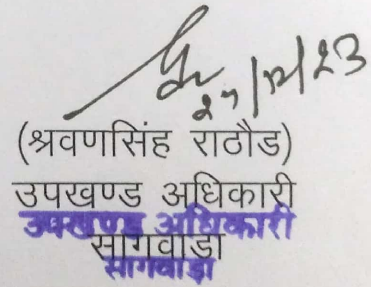 27/12/23
(श्रवणसिंह राठौड)
उपखण्ड अधिकारी
उपखण्ड अधिकारी
सागवाडा
सागवाड़ा